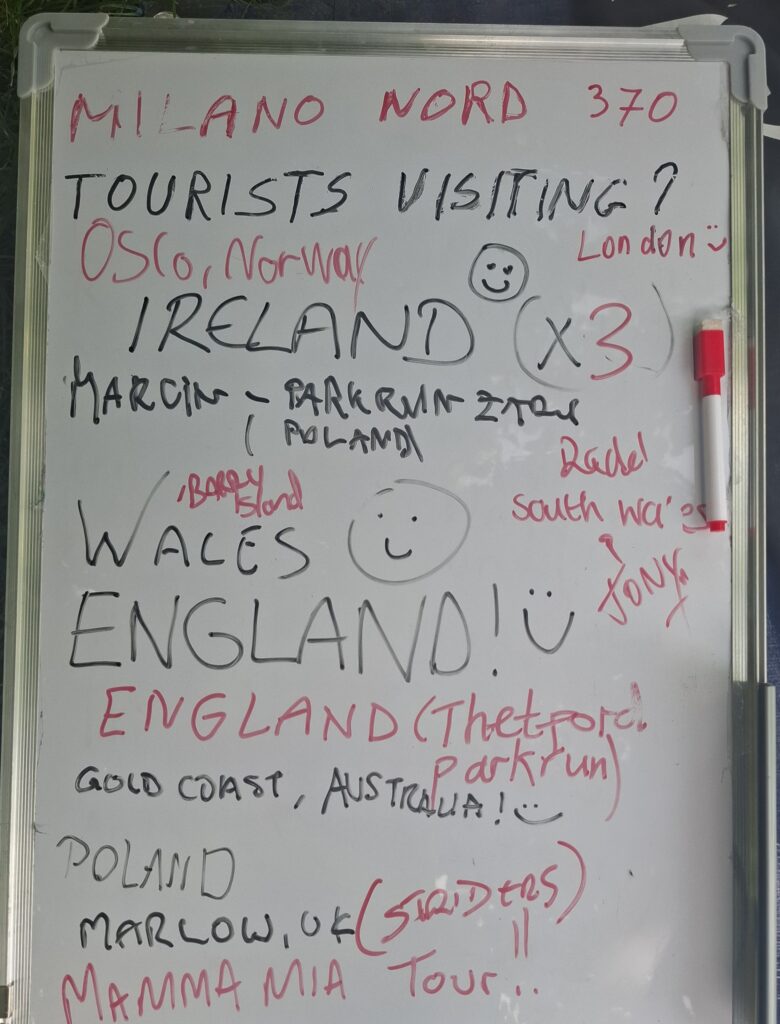 MILANO NORD 370
TOURISTS VISITING?
OSlo, Norway
London
IRELAND (x3)
MARCIN - PARKRUN
(POLAND)
Rachel
South Wales
BARRY
Island
WALES
TONY
ENGLAND!
ENGLAND (Thetford
parkrun)
GOLD COAST, AUSTRALIA!
POLAND
MARLOW, UK (STRIDERS)
MAMMA MIA Tour!!